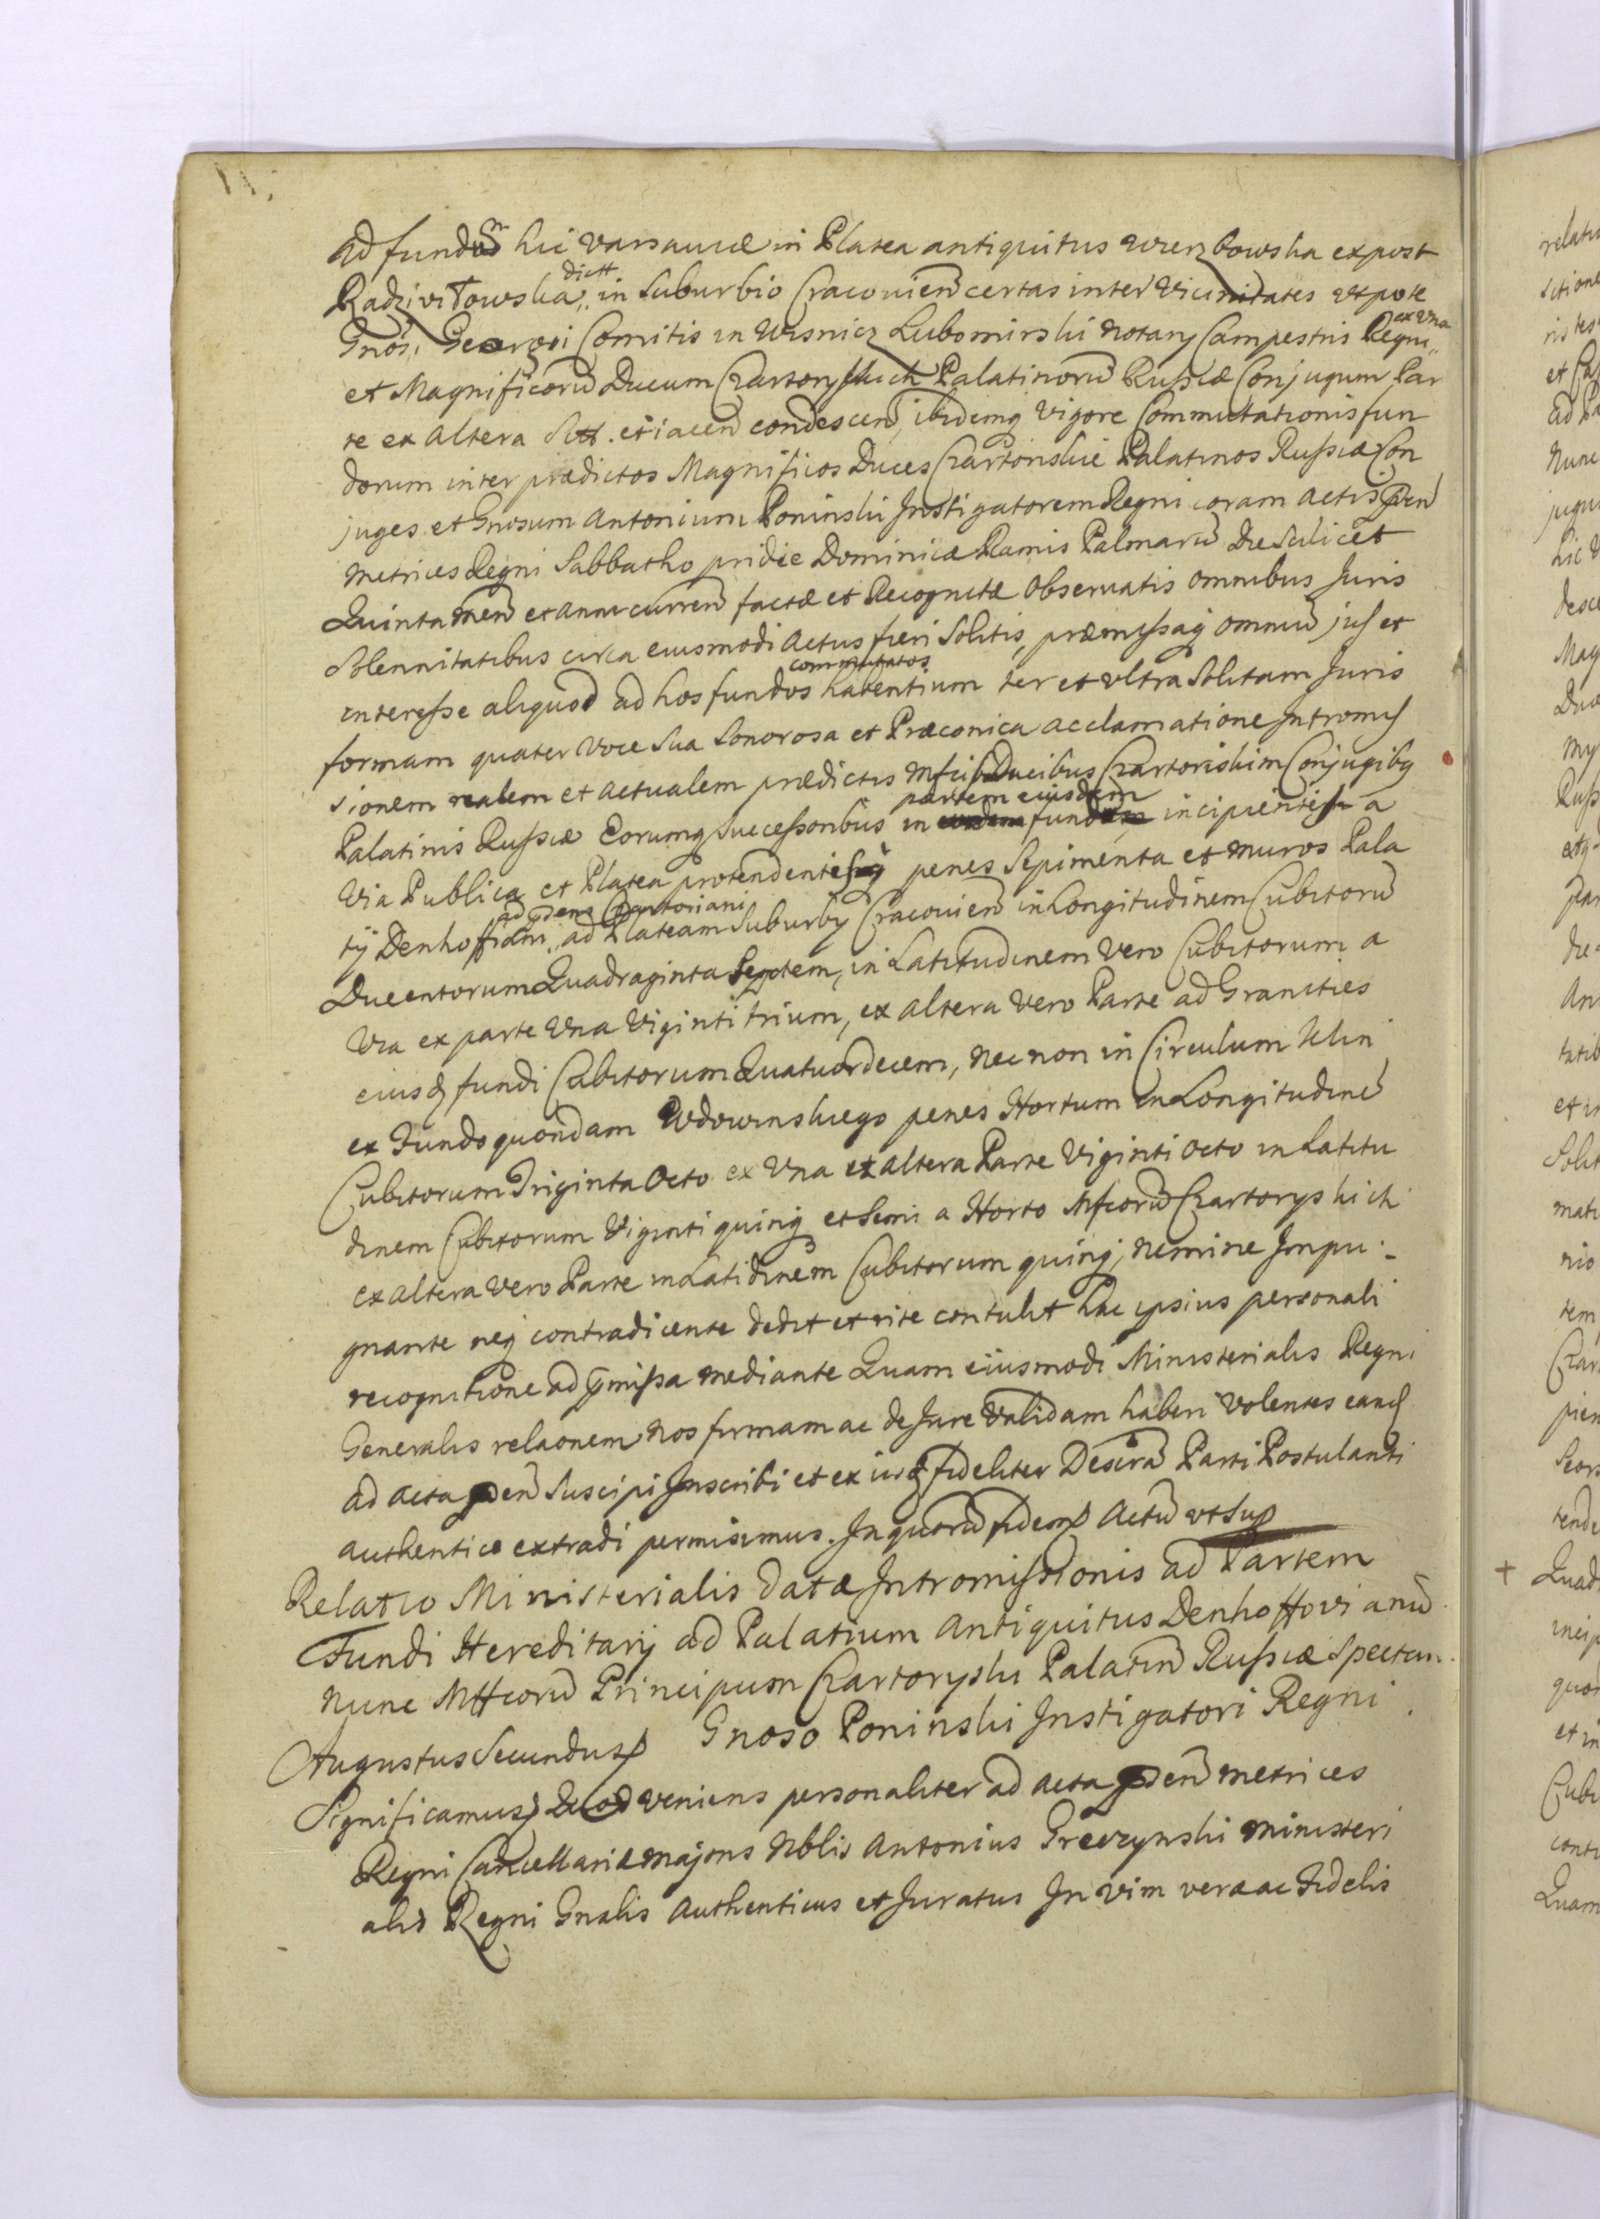 11.
ad fundum hic Varsaviæ in Platea antiquitus Wierzbowska ex post
Radziwiłowska dict. in Suburbio Cracovien certas inter Vicinitates utpote
Gnosi Georgii Comitis in Wisnicz Lubomirski Notarij Campestris Regni ex Una
et Magnificorū Ducum Czartoryskich Palatinorū Russiæ Conjugum Par
te ex altera Sitt. et iacen condescen, ibidemq Vigore Commutationis fun
dorum inter prædictos Magnificos Duces Czartoriskie Palatinos Russiæ Con
juges et Gnosum Antonium Poninski Instigatorem Regni coram Actis pñn
Metrices Regni Sabbatho pridie Dominicæ Ramis Palmarū Die Scilicet
Quinta Men et Anni curren factæ et Recognitæ Observatis omnibus Juris
Solennitatibus circa eiusmodi Actus fieri Solitis, præmissaq omniū jus et
interesse aliquod ad hos fundos commutatos habentium ter et ultra Solitam Juris
formam quater Voce Sua Sonorosa et Præconica acclamatione Intromis
sionem realem et actualem prædictis Mficis Ducibus Czartoriskim Conjugibq
Palatinis Russiæ Eorumq Successoribus in partem eiusdem fundi incipientis a
Via Publica et Platea protendentisq penes Sepimenta et muros Pala
tij Denhoffiani ad pñens Czartoriani ad Plateam Suburbij Cracovien in Longitudinem Cubitorū
Ducentorum Quadraginta Septem, in Latitudinem Vero Cubitorum a
Via ex parte Una Viginti trium, ex altera Vero Parte ad Granities
eiusd fundi Cubitorum Quatuordecem, nec non in Circulum
ex Fundo quondam Wdowinskiego penes Hortum in Longitudine
Cubitorum Triginta Octo ex Una ex altera Parte Viginti Octo in Latitu
dinem Cubitorum Viginti quinq et Semi a Horto Mficorū Czartoryskich
ex altera Vero Parte in Latidinem Cubitorum quinq; nemine Impu-
gnante neq contradicente dedit et rite contulit hac ipsius personali
recognitione ad pmissa mediante Quam eiusmodi Ministerialis Regni
Generalis relaonem Nos firmam ac de Jure Validam haberi Volentes eand
ad acta pñen Suscipi Inscribi et ex iisd fideliter Descra Parti Postulanti
authentice extradi permisimus. In quorū fidem Actū ut Sup
Relatio Ministerialis Datæ Intromissionis ad Partem
Fundi Hereditarij ad Palatium Antiquitus Denhoffovianū
Nunc Mfficorū Principum Czartoryski Palatin Russiæ Spectan.
Augustus Secundus Gnoso Poninski Instigatori Regni
Significamus Quod veniens personaliter ad acta pñen Metrices
Regni Cancellariæ majoris Nblis Antonius Greczynski Ministeri
alis Regni Gnalis Authenticus et Juratus In vim veræ ac Fidelis